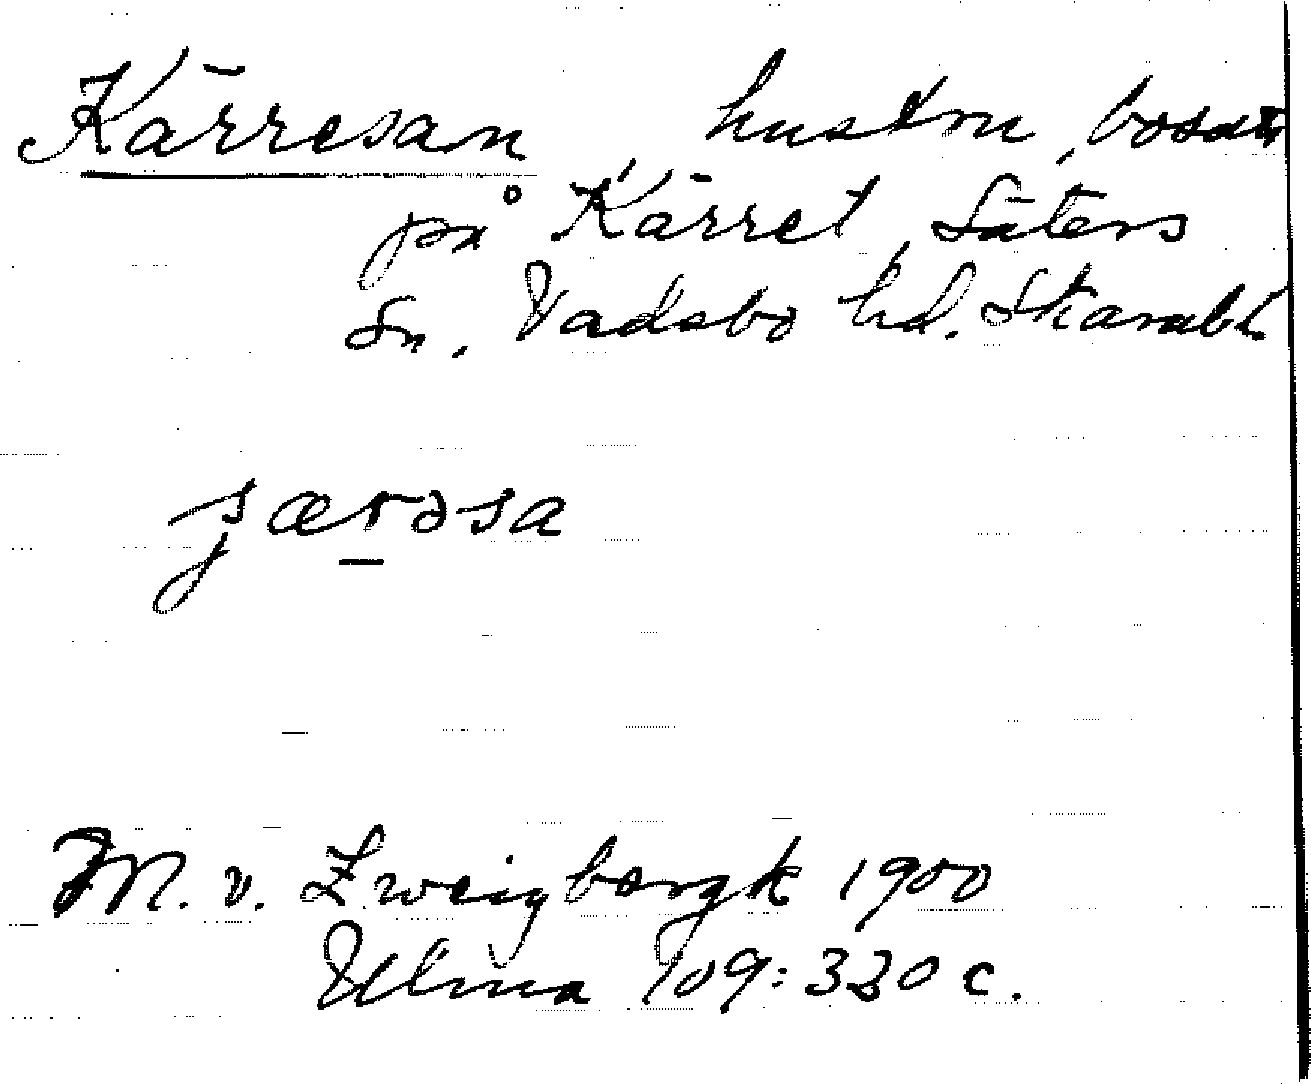 Kärresan hustru, bosatt
på Kärret, Säters
sn. Vadsbo hd. Skarabl
M. v. Zweigbergk 1900
Ulma 109:330 c.